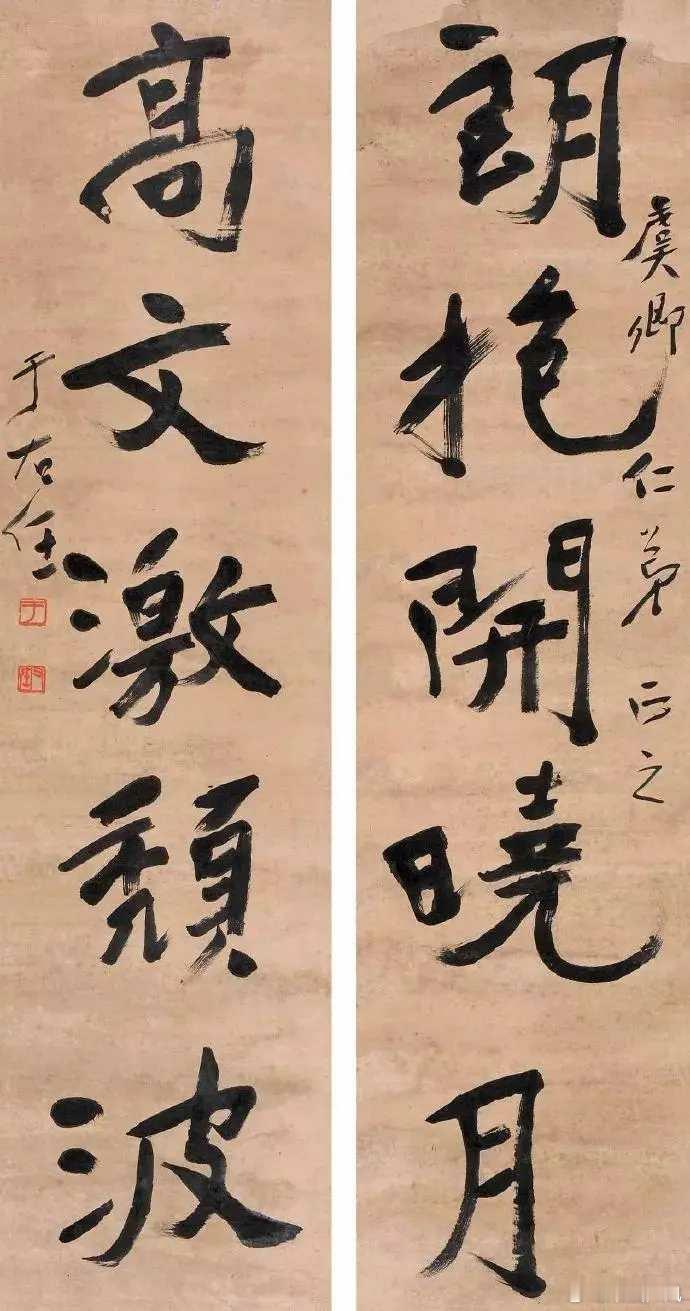 虞卿仁弟正之
朗抱開曉月
高文激頹波
于右任